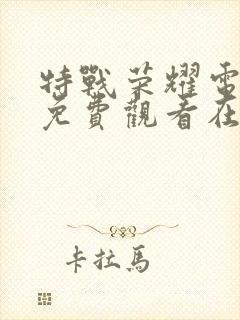 特戰荣耀電
免費觀看在
卡拉馬